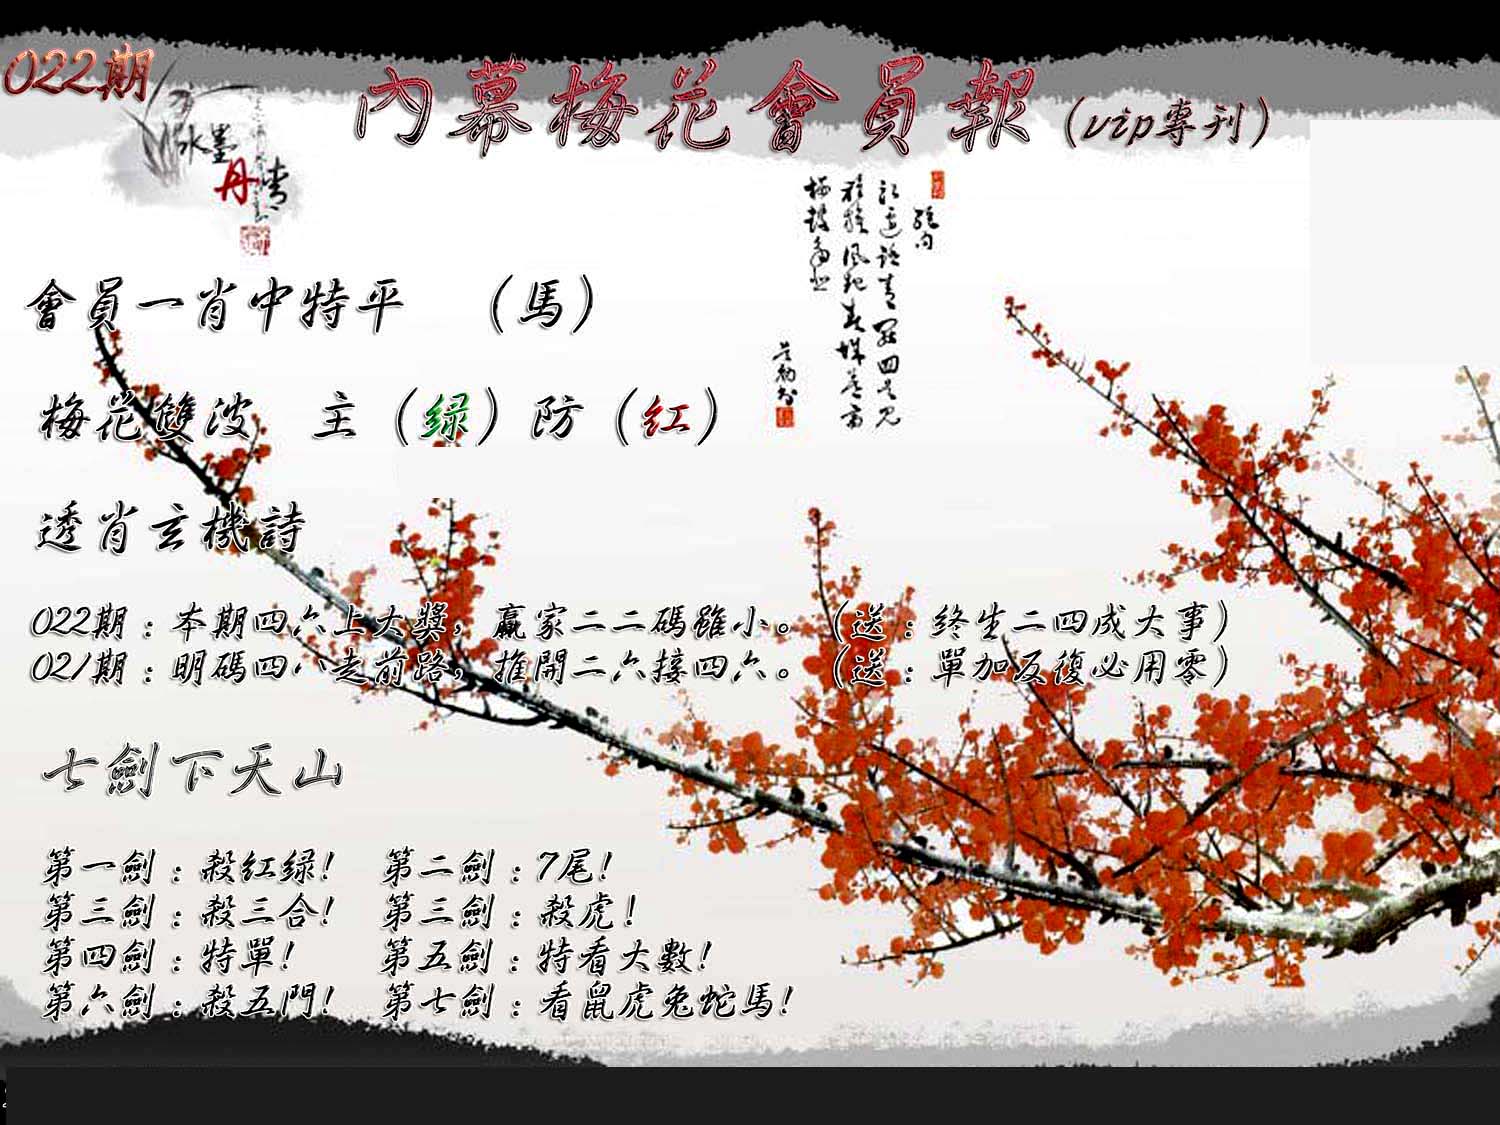 022期
內幕梅花會員報(vip專刊)
水墨
丹青
絕句
會員一肖中特平 (馬)
梅花雙波 主(绿)防(红)
透肖玄機詩
022期:本期四六上大獎,贏家二二碼雖小。(送:终生二四成大事)
021期:明碼四八走前路,推開二六接四六。(送:單加反復必用零)
七劍下天山
第一劍:殺紅绿! 第二劍:7尾!
第三劍:殺三合! 第三劍:殺虎!
第四劍:特單! 第五劍:特看大數!
第六劍:殺五門! 第七劍:看鼠虎兔蛇馬!